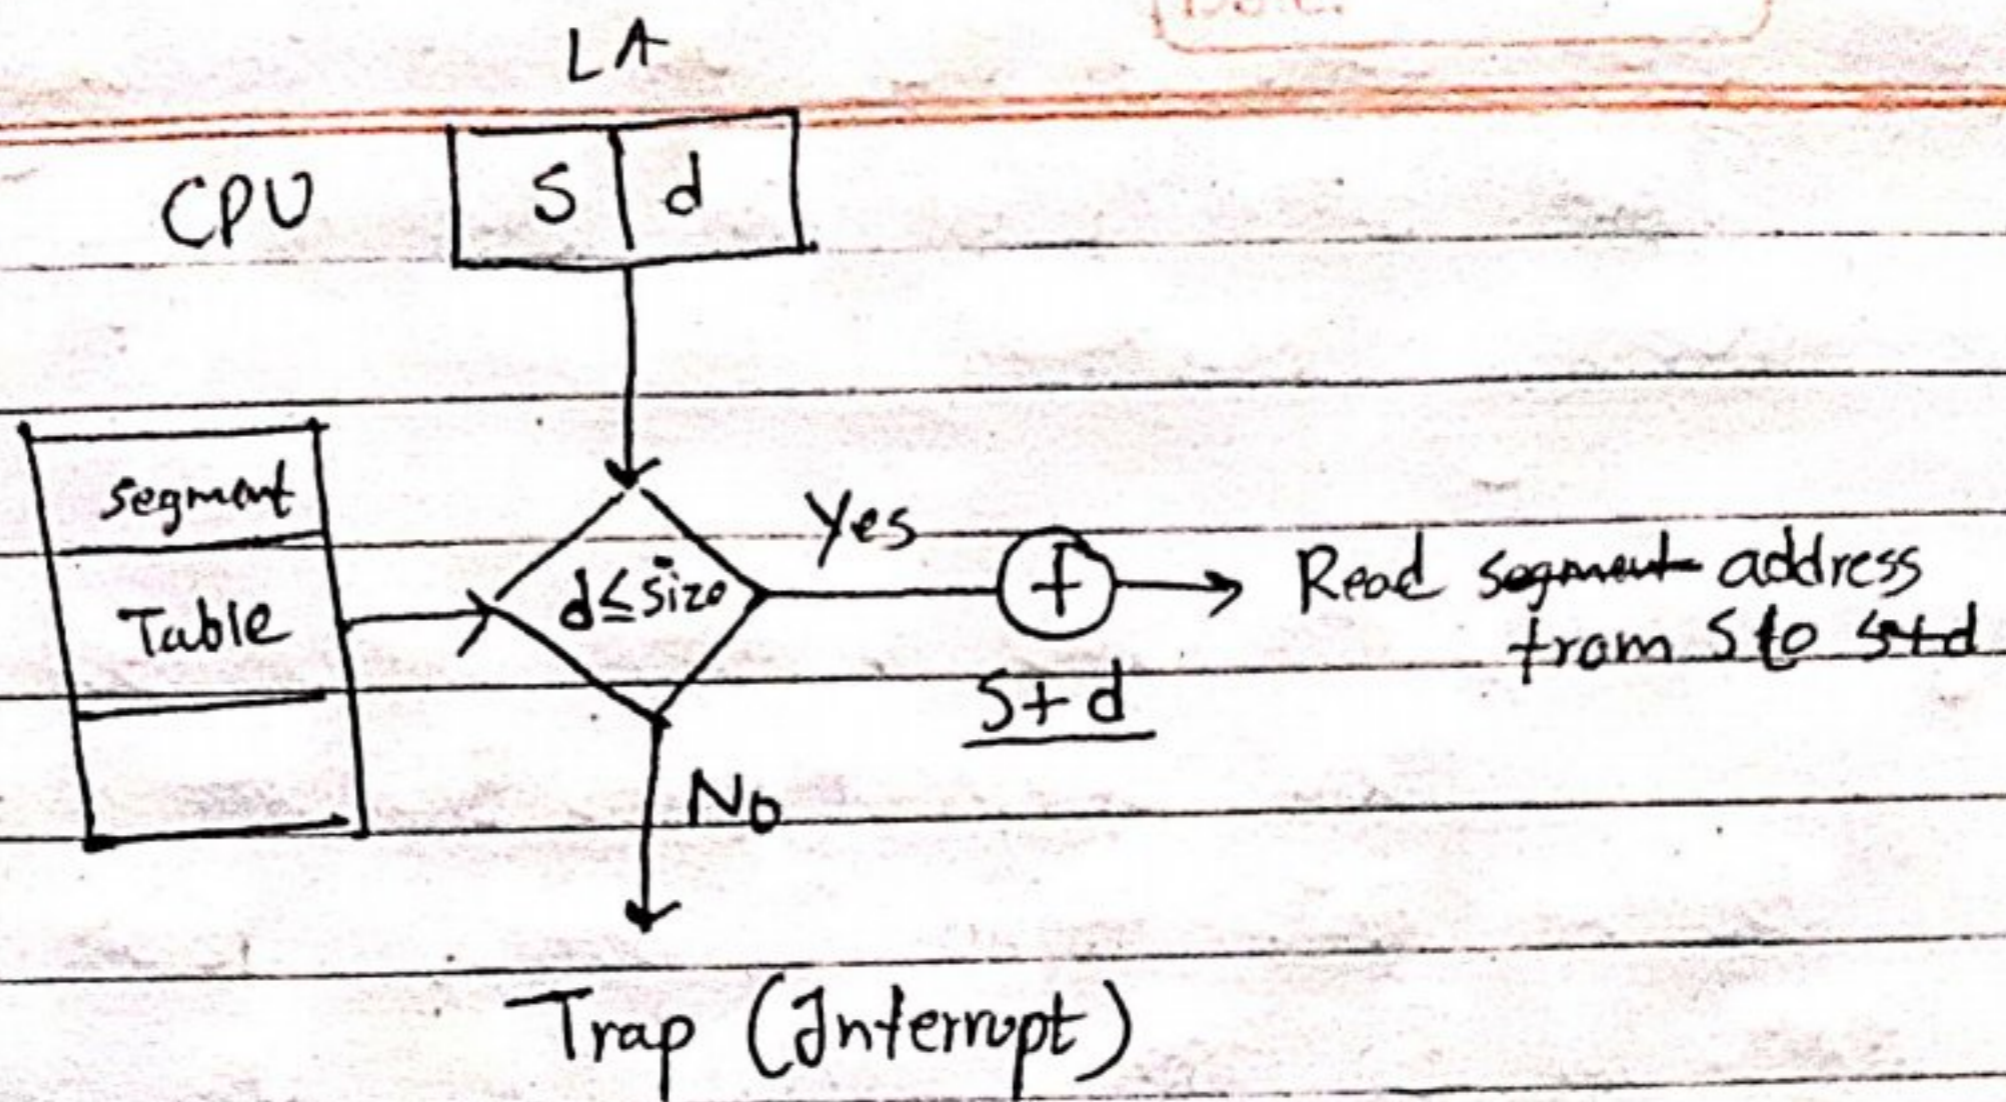 LA
CPU
S d
segment
Table
d≤size
Yes
+
S+d
Read segment address
from S to S+d
No
Trap (Interrupt)